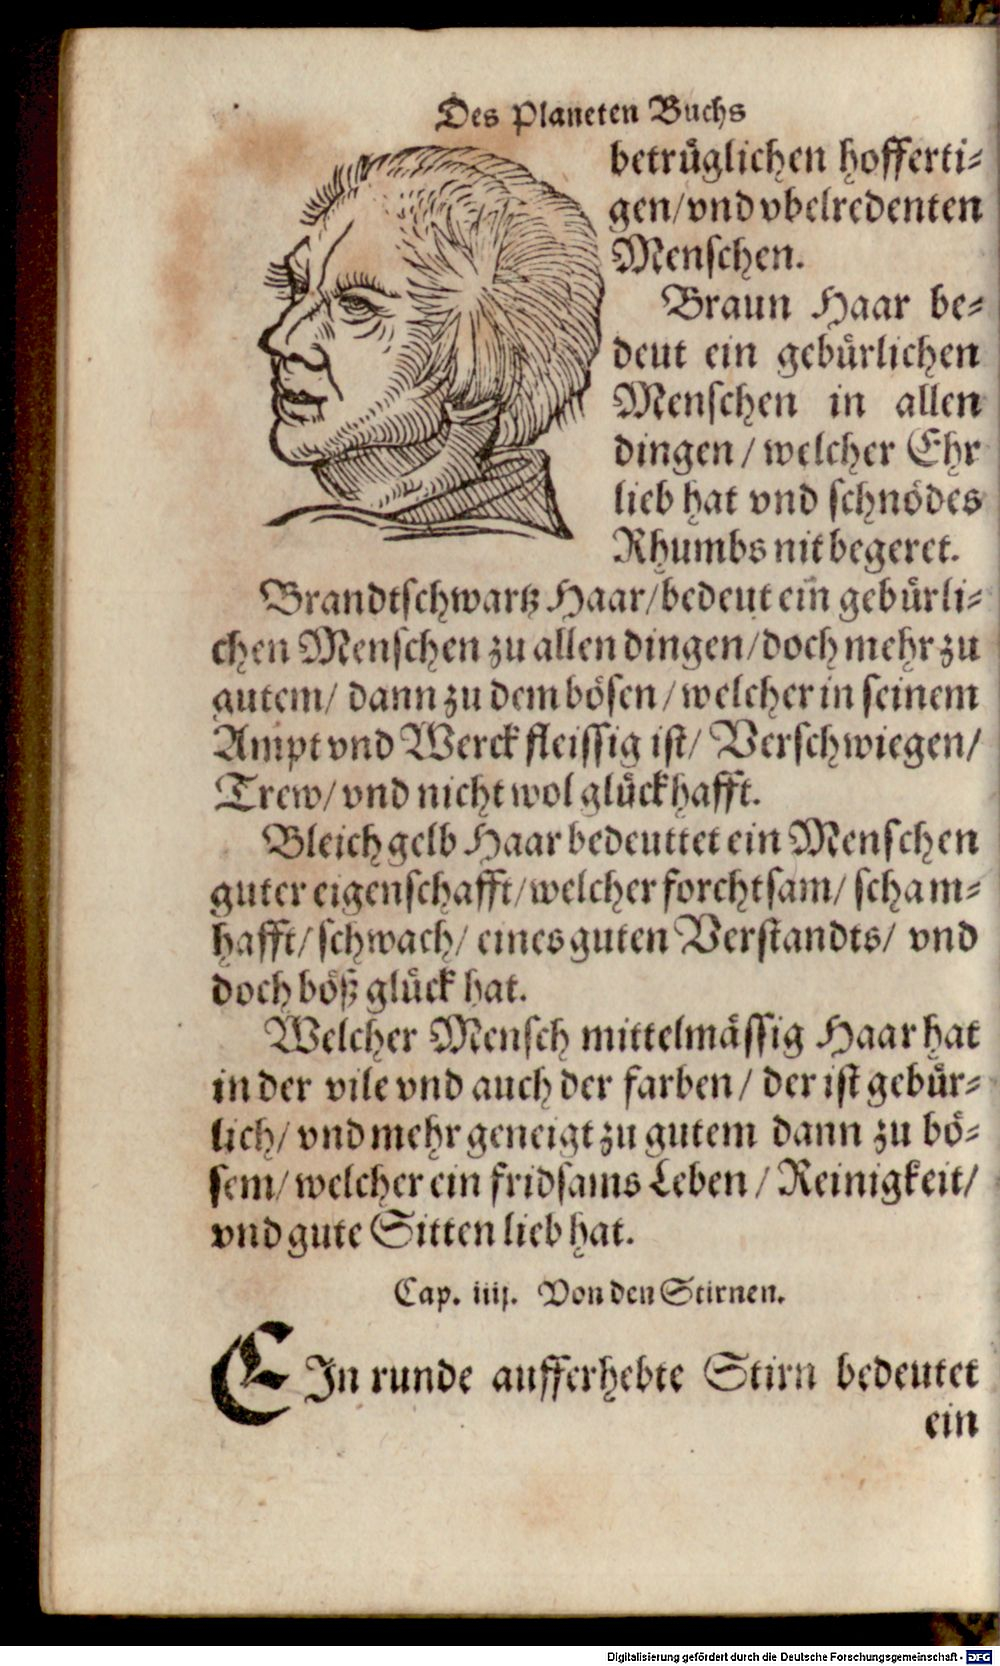 Des Planeten Buchs
betrüglichen hofferti⸗
gen/vnd vbelredenten
Menschen.
Braun Haar be⸗
deut ein gebürlichen
Menschen in allen
dingen / welcher Ehr
lieb hat vnd schnödes
Rhumbs nit begeret.
Brandtschwartz Haar/bedeut ein gebürli⸗
chen Menschen zu allen dingen/doch mehr zu
gutem/ dann zu dem bösen/welcher in seinem
Ampt vnd Werck fleissig ist/ Verschwiegen/
Trew/ vnd nicht wol glückhafft.
Bleich gelb Haar bedeuttet ein Menschen
guter eigenschafft/welcher forchtsam/ scham⸗
hafft/ schwach/ eines guten Verstandts/ vnd
doch böß glück hat.
Welcher Mensch mittelmässig Haar hat
in der vile vnd auch der farben/ der ist gebür⸗
lich/ vnd mehr geneigt zu gutem dann zu bö⸗
sem/ welcher ein fridsams Leben / Reinigkeit/
vnd gute Sitten lieb hat.
Cap. iiij. Von den Stirnen.
EIn runde aufferhebte Stirn bedeutet
ein
Digitalisierung gefördert durch die Deutsche Forschungsgemeinschaft - DFG